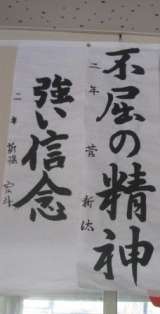 不屈の精神
二年 菅 新汰
強い信念
二年